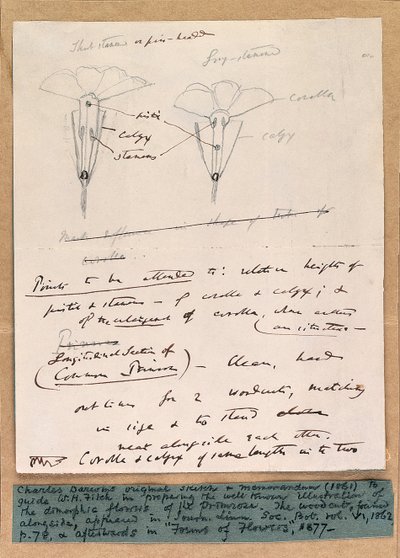 Short stamens or pin-headed
Long-stamens
Corolla
pistil
calyx
calyx
stamens
Make difference in shape of tube of
corolla
Points to be attended to: relative heights of
pistil & stamens — of corolla & calyx; &
of the enlargement of corolla, where anthers
are situated —
Primrose
Longitudinal section of
(Common Primrose) — Clean, hard
outlines for 2 woodcuts, matching
in size & to stand close
neat alongside each other.
Corolla & calyx of same lengths in the two
Charles Darwin's original sketch & memorandum (1861) to
guide W. H. Fitch in preparing the well known illustration of
the dimorphic flowers of the Primrose. The woodcut, found
alongside, appeared in Journ. Linn. Soc. Bot. vol. VI, 1862
p. 78, & afterwards in "Forms of Flowers", 1877—